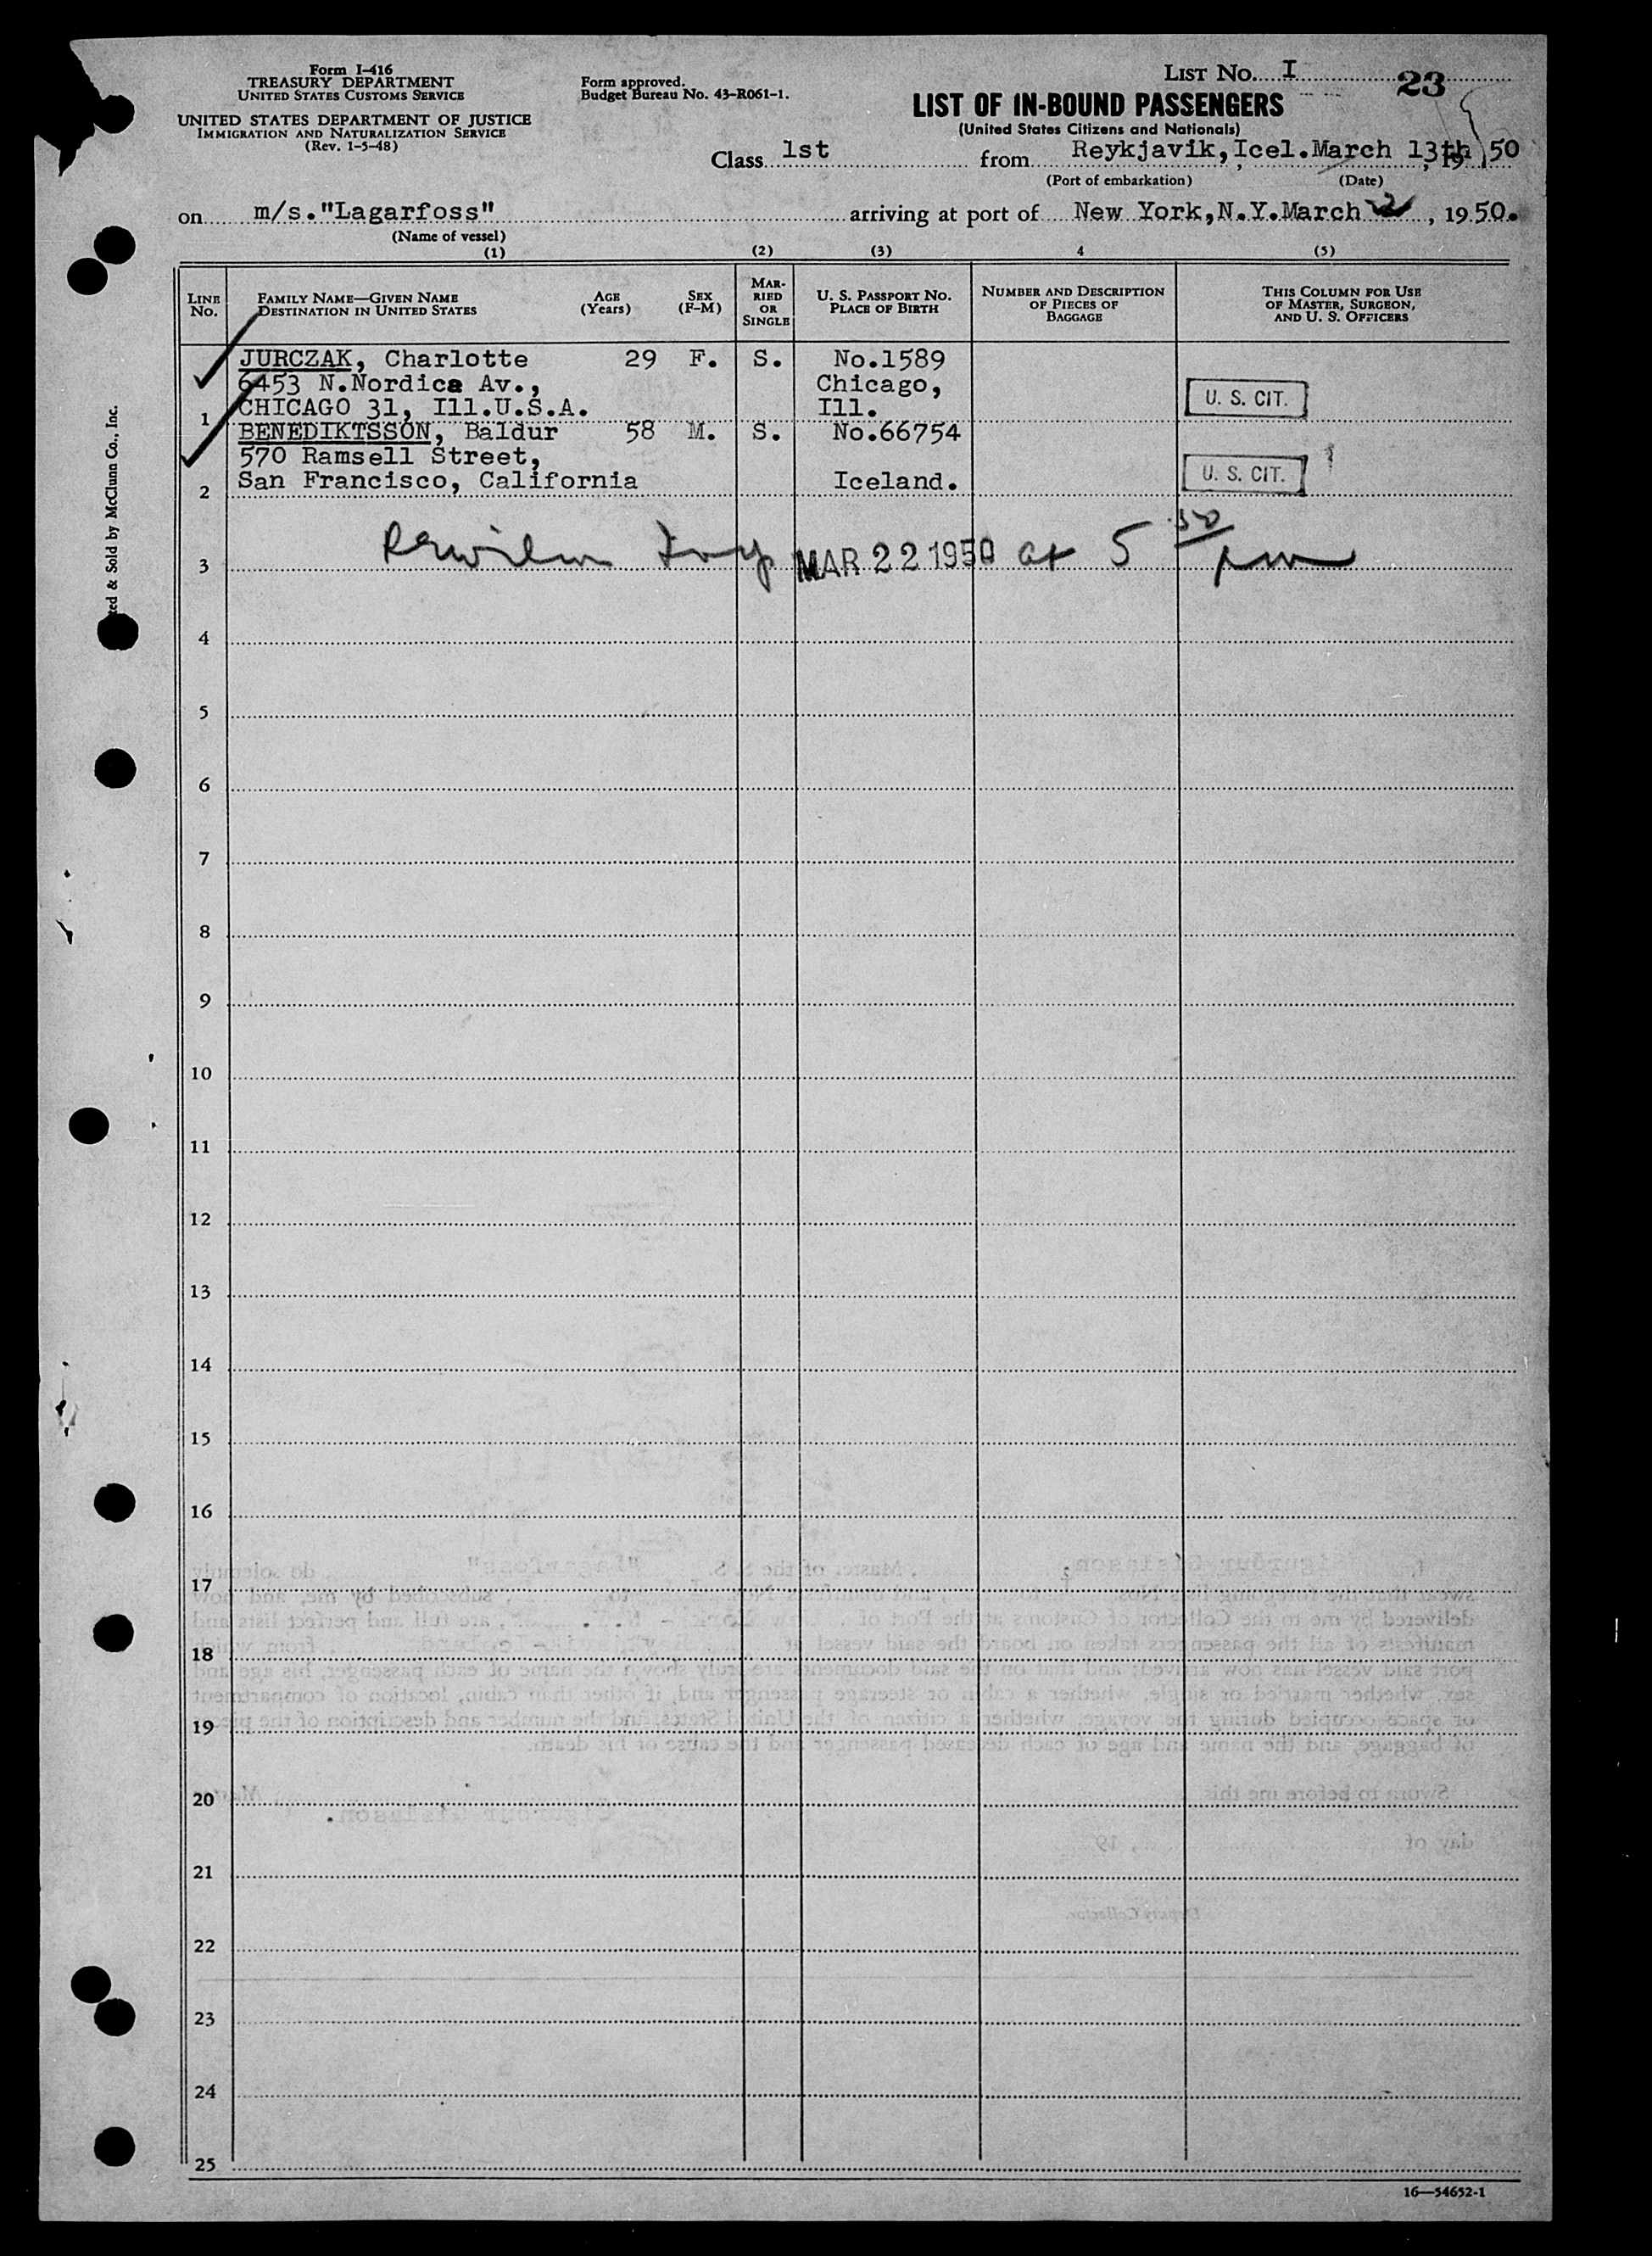 Form I-416
TREASURY DEPARTMENT
UNITED STATES CUSTOMS SERVICE
UNITED STATES DEPARTMENT OF JUSTICE
IMMIGRATION AND NATURALIZATION SERVICE
(Rev. 1-5-48)
Form approved.
Budget Bureau No. 43-R061-1.
LIST NO. I 23
LIST OF IN-BOUND PASSENGERS
(United States Citizens and Nationals)
Class 1st from Reykjavik, Icel. March 13th, 1950
(Port of embarkation) (Date)
on m/s. "Lagarfoss" arriving at port of New York, N.Y. March , 1950.
(Name of vessel)
(1) (2) (3) 4 (5)
LINE No. FAMILY NAME—GIVEN NAME DESTINATION IN UNITED STATES AGE (Years) SEX (F-M) MARRIED OR SINGLE U. S. PASSPORT NO. PLACE OF BIRTH NUMBER AND DESCRIPTION OF PIECES OF BAGGAGE THIS COLUMN FOR USE OF MASTER, SURGEON, AND U. S. OFFICERS
JURCZAK, Charlotte 29 F. S. No.1589
6453 N.Nordica Av., Chicago,
1 CHICAGO 31, Ill.U.S.A. Ill. U. S. CIT.
BENEDIKTSSON, Baldur 58 M. S. No.66754
570 Ramsell Street,
2 San Francisco, California Iceland. U. S. CIT.
3 MAR 22 1950 at 5 30 pm
4
5
6
7
8
9
10
11
12
13
14
15
16
17
18
19
20
21
22
23
24
25
16—54652-1
ted & Sold by McClunn Co., Inc.